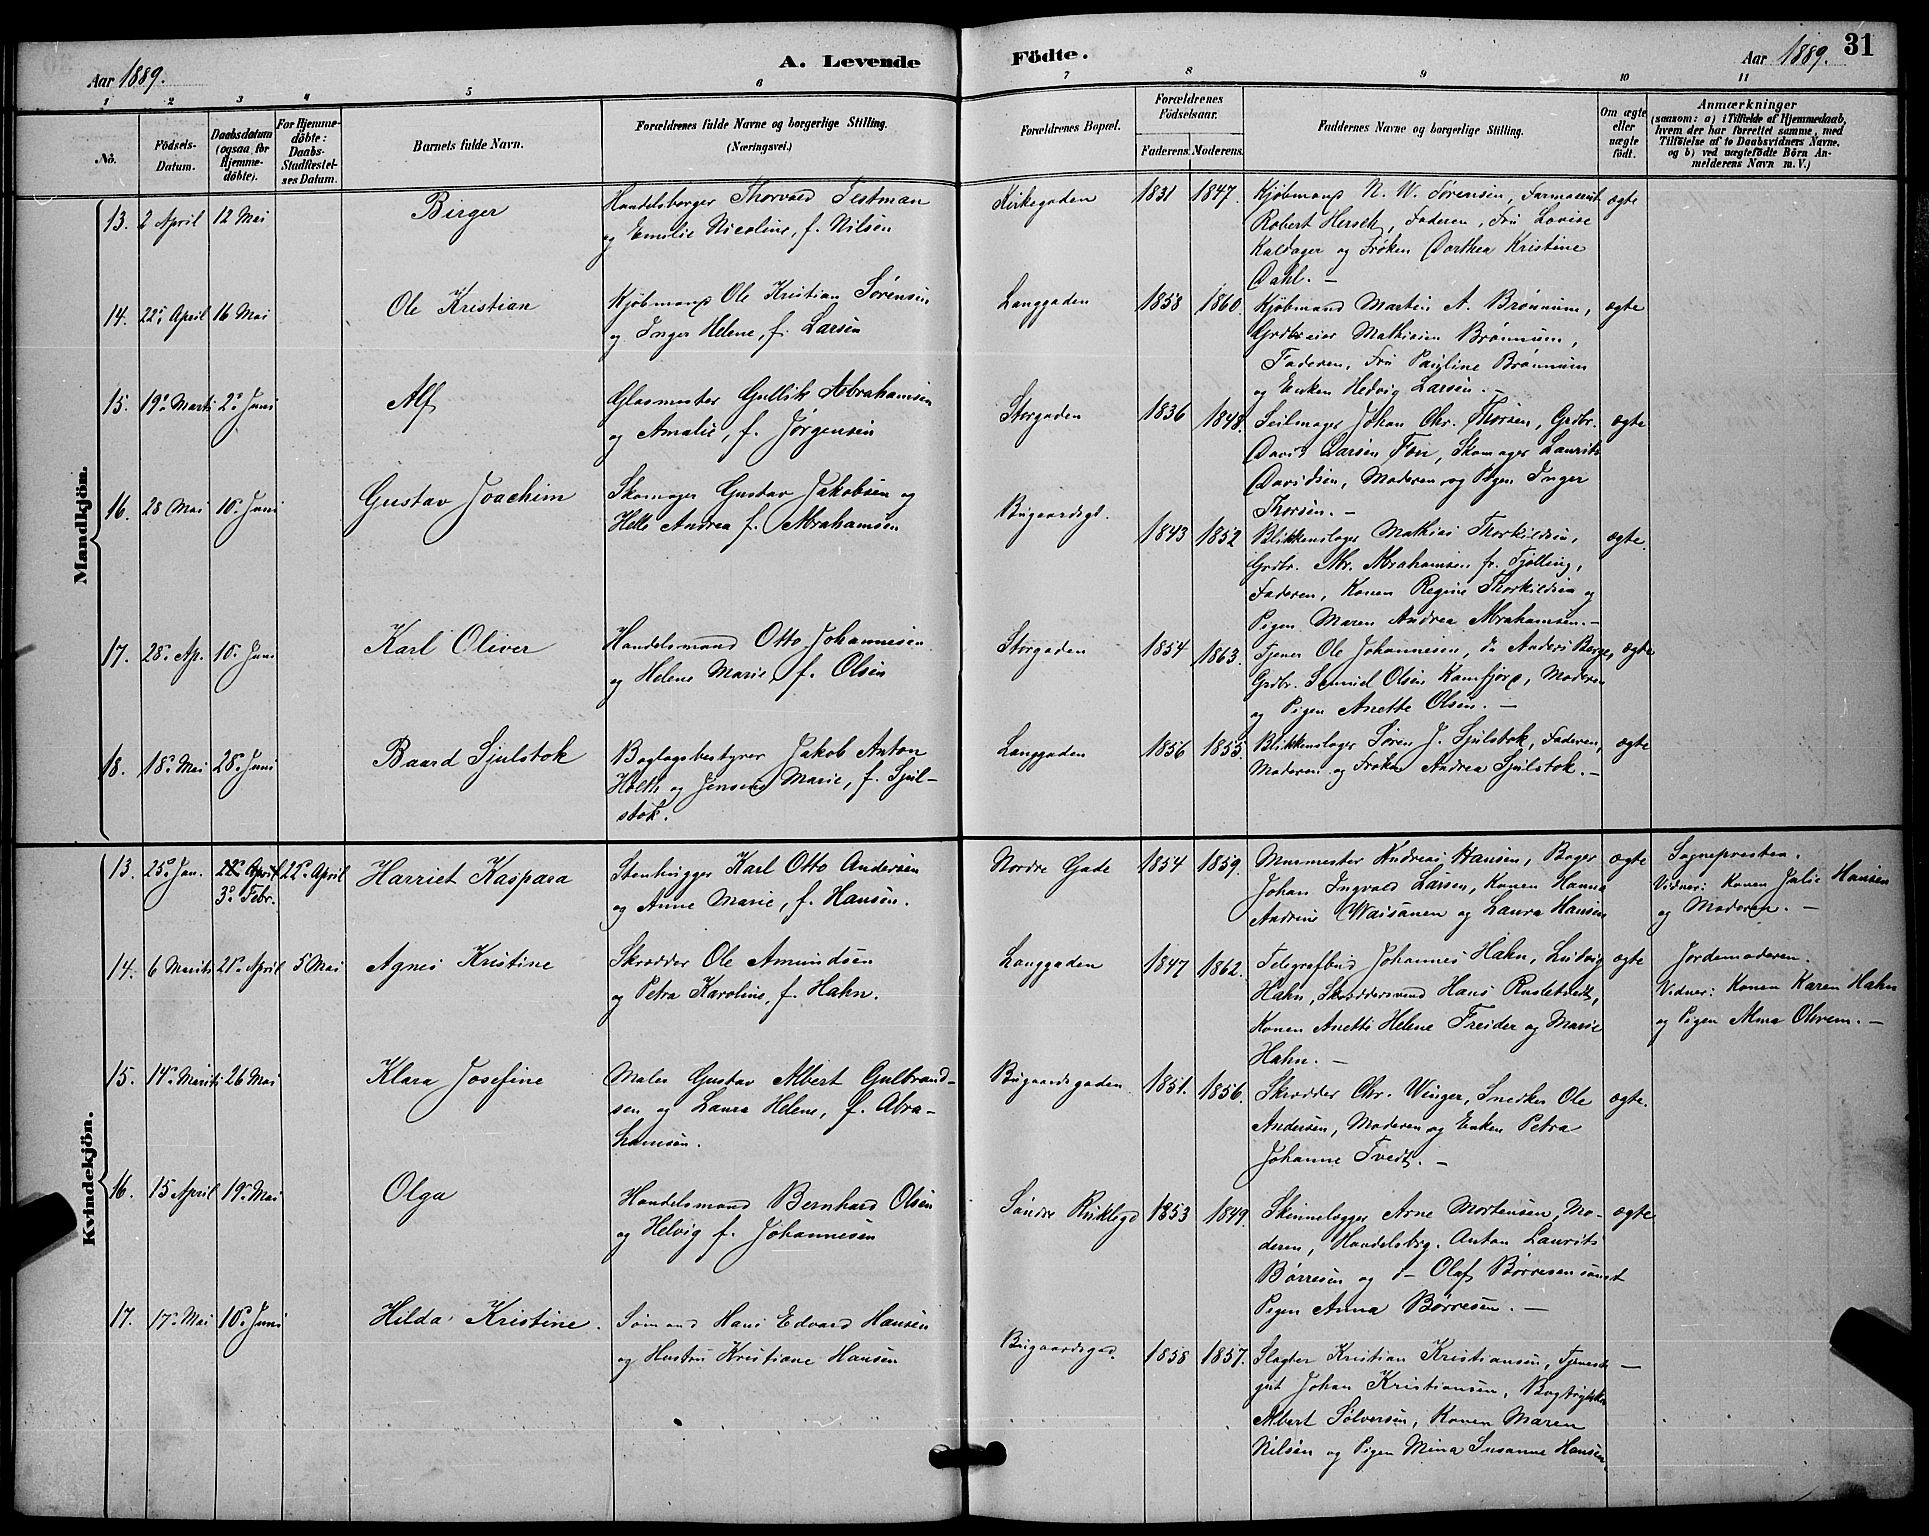 Aar 1889.
A. Levende
Födte.
Aar 1889.
31
1 2 3 4 5 6 7 8 9 10 11
No.
Födsels-
Datum.
Daabsdatum
(ogsaa for
Hjemme-
döbte).
For Hjemme-
döbte:
Daabs-
Stadfæstel-
ses Datum.
Barnets fulde Navn.
Forældrenes fulde Navne og borgerlige Stilling.
(Næringsvei.)
Forældrenes Bopæl.
Forældrenes
Födselsaar.
Faderens. Moderens.
Faddernes Navne og borgerlige Stilling.
Om ægte
eller
uægte
födt.
Anmærkninger
(saasom: a) i Tilfælde af Hjemmedaab,
hvem der har forrettet samme, med
Tilföielse af to Daabsvidners Navne.
og b) ved uægtefödte Börn An-
melderens Navn m. V.)
Mandkjön.
13. 2 April 12 Mai
Birger
Handelsborger Thorvald Testman
og Emilie Nicoline, f. Nilsen
Kirkegaden 1831 1847.
Kjöbmand N. W. Sørensen, Farmaceut
Robert Herseth, Faderen, Fru Lovise
Kaldager og Frøken Dorthea Kristine
Dahl. —
ægte
14. 22. April 16 Mai
Ole Kristian
Kjöbmand Ole Kristian Sørensen
og Inger Helene, f. Larsen
Langgaden 1858 1860.
Kjöbmand Martin A. Brønnum,
Grdbreier Mathisen Brønnum,
Faderen, Fru Pauline Brønnum
og Enken Hedvig Larsen. —
ægte
15. 19. Marts 2. Juni
Alf
Glasmester Gullik Abrahamsen
og Amalie, f. Jørgensen
Storgaden 1836 1848.
Seilmager Johan Chr. Thorsen, Grdbr.
David Larsen Fon, Skomager Laurits
Davidsen, Moderen og Pigen Inger
Thorsen. —
ægte
16. 28 Mai 10. Juni
Gustav Joachim
Skomager Gustav Jakobsen og
Helle Andrea f. Abrahamsen
Bugaardsgt. 1843 1852
Blikkenslager Mathias Thorkildsen,
Grdbr. Abr. Abrahamsen fr. Tjølling,
Faderen, Konen Regine Thorkildsen og
Pigen Maren Andrea Abrahamsen. —
ægte.
17. 28. Ap. 10. Juni
Karl Oliver
Handelsmand Otto Johannesen
og Helene Marie, f. Olsen
Storgaden 1854 1863.
Tjener Ole Johannesen, do Anders Berge,
Grdbr. Samuel Olsen Kamfjord, Moderen
og Pigen Anette Olsen. —
ægte
18. 18. Mai 28. Juni
Baard Sjulstok
Boglagsbestyrer Jakob Anton
Holth og Jensine Marie, f. Sjul-
stok.
Langgaden 1856 1855.
Blikkenslager Søren J. Sjulstok, Faderen,
Moderen og Frøken Andrea Sjulstok. —
ægte
Kvindekjön.
13. 25. Jan. 22. April 22. April
3. Febr.
Harriet Kaspara
Stenhugger Karl Otto Andersen
og Anne Marie, f. Hansen.
Nordre Gade 1854 1859.
Murmester Andreas Hansen, Bager
Johan Ingvald Larsen, Konen Hanna
Andrine Waisanen og Laura Hansen
ægte
Sognepresten.
Vidner: Konen Julie Hansen
og Moderen. —
14. 6 Marts 21. April 5 Mai
Agnes Kristine
Skrædder Ole Amundsen
og Petra Karoline, f. Hahn.
Langgaden 1847 1862.
Telegrafbud Johannes Hahn, Ludvig
Hahn, Skræddersvend Hans Rustetvedt,
Konen Anette Helene Freider og Marie
Hahn. —
ægte
Jordemoderen.
Vidner: Konen Karen Hahn
og Pigen Alma Ohrem. —
15. 14. Marts 26 Mai
Klara Josefine
Maler Gustav Albert Gulbrand-
sen og Laura Helene, f. Abra-
hamsen.
Bugaardsgaden 1851. 1856.
Skrædder Chr. Winger, Snedker Ole
Andersen, Moderen og Enken Petra
Johanne Tvedt. —
ægte.
16. 15 April 19. Mai
Olga
Handelsmand Bernhard Olsen
og Helvig f. Johannesen
Søndre 1853 1849.
Skinnelægger Arne Mortensen, Mo-
deren, Handelsbrg. Anton Laurits
Børresen og do Olaf Børresen samt
Pigen Anna Børresen. —
ægte
17. 17. Mai 10. Juni
Hilda Kristine.
Sømand Hans Edvard Hansen
og Hustru Kristiane Hansen
Bugaardsgad. 1858 1857.
Slagter Kristian Kristiansen, Tjeneste-
gut Johan Kristiansen, Bogtrykker
Albert Sølversen, Konen Maren
Nilsen og Pigen Mina Susanne Hansen.
—